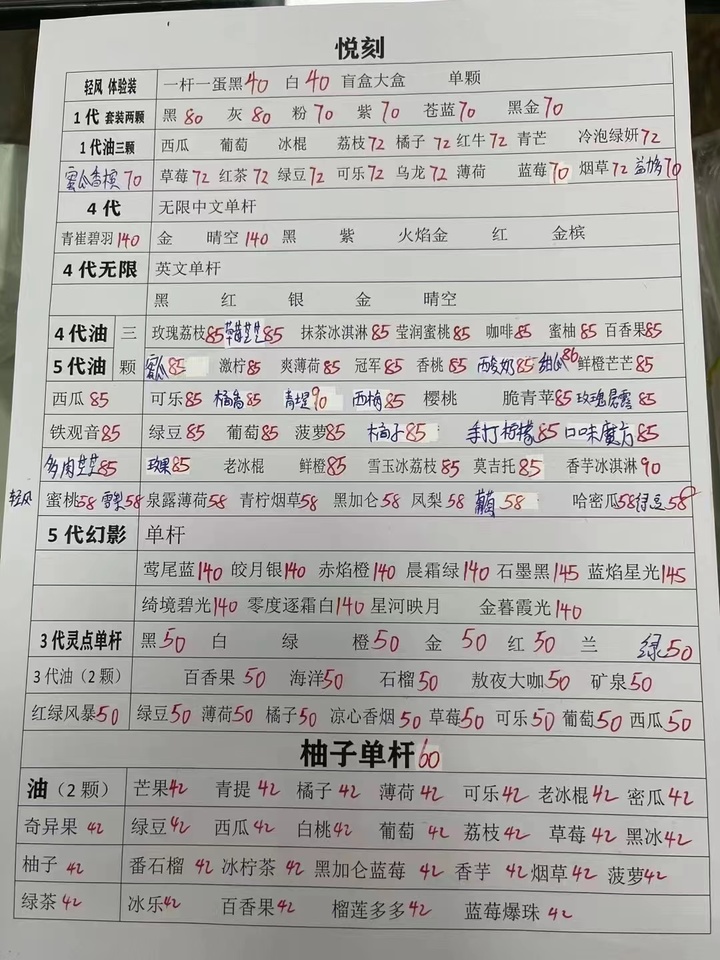 悦刻
轻风 体验装 一杆一蛋黑40 白40 盲盒大盒 单颗
1代 套装两颗 黑80 灰80 粉70 紫70 苍蓝70 黑金70
1代油三颗 西瓜 葡萄 冰棍 荔枝72 橘子72 红牛72 青芒 冷泡绿妍72
蜜瓜香槟70 草莓72 红茶72 绿豆72 可乐72 乌龙72 薄荷 蓝莓70 烟草72 益力多70
4代 无限中文单杆
青崔碧羽140 金 晴空140 黑 紫 火焰金 红 金槟
4代无限 英文单杆
黑 红 银 金 晴空
4代油 三 玫瑰荔枝85 草莓芝芝85 抹茶冰淇淋85 莹润蜜桃85 咖啡85 蜜柚85 百香果85
5代油 颗 蜜瓜85 激柠85 爽薄荷85 冠军85 香桃85 酸奶85 甜瓜86 鲜橙芒芒85
西瓜85 可乐85 橘 85 青提90 西柚85 樱桃 脆青苹85 玫瑰 85
铁观音85 绿豆85 葡萄85 菠萝85 橘子85 手打柠檬85 口味魔方85
多肉芝芝85 85 老冰棍 鲜橙85 雪玉冰荔枝85 莫吉托85 香芋冰淇淋90
轻风 蜜桃58 雪梨58 泉露薄荷58 青柠烟草58 黑加仑58 凤梨58 葡萄58 哈密瓜58 绿豆58
5代幻影 单杆
莺尾蓝140 皎月银140 赤焰橙140 晨霜绿140 石墨黑145 蓝焰星光145
绮境碧光140 零度逐霜白140 星河映月 金暮霞光140
3代灵点单杆 黑50 白 绿 橙50 金50 红50 兰 绿50
3代油（2颗） 百香果50 海洋50 石榴50 敖夜大咖50 矿泉50
红绿风暴50 绿豆50 薄荷50 橘子50 凉心香烟50 草莓50 可乐50 葡萄50 西瓜50
柚子单杆60
油（2颗） 芒果42 青提42 橘子42 薄荷42 可乐42 老冰棍42 密瓜42
奇异果42 绿豆42 西瓜42 白桃42 葡萄42 荔枝42 草莓42 黑冰42
柚子42 番石榴42 冰柠茶42 黑加仑蓝莓42 香芋42 烟草42 菠萝42
绿茶42 冰乐42 百香果42 榴莲多多42 蓝莓爆珠42